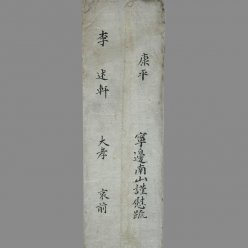 康平
寧邊南山謹慰疏
李 述軒 大孝 哀前